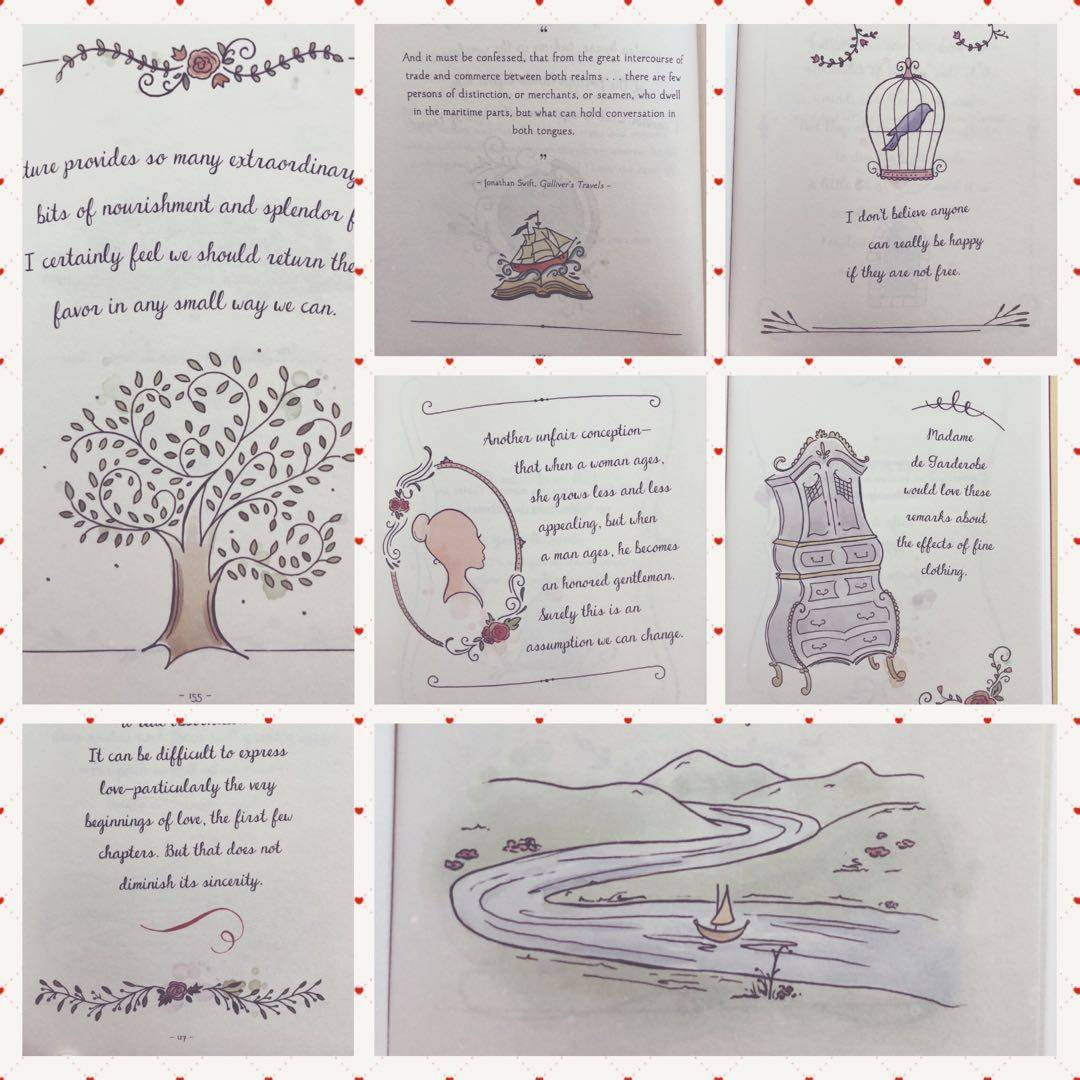 ture provides so many extraordinary
bits of nourishment and splendor f
I certainly feel we should return the
favor in any small way we can.
- 155 -
“
And it must be confessed, that from the great intercourse of
trade and commerce between both realms . . . there are few
persons of distinction, or merchants, or seamen, who dwell
in the maritime parts, but what can hold conversation in
both tongues.
”
- Jonathan Swift, Gulliver's Travels -
I don't believe anyone
can really be happy
if they are not free.
Another unfair conception—
that when a woman ages,
she grows less and less
appealing, but when
a man ages, he becomes
an honored gentleman.
Surely this is an
assumption we can change.
Madame
de Garderobe
would love these
remarks about
the effects of fine
clothing.
It can be difficult to express
love—particularly the very
beginnings of love, the first few
chapters. But that does not
diminish its sincerity.